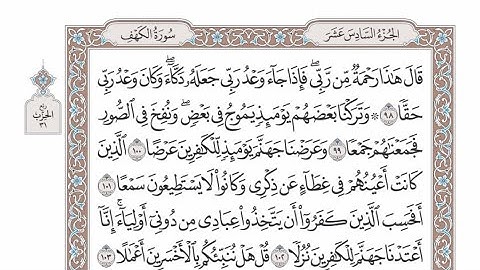 الجزء السادس عشر
سورة الكهف
قَالَ هَٰذَا رَحْمَةٌ مِّن رَّبِّي ۖ فَإِذَا جَآءَ وَعْدُ رَبِّي جَعَلَهُۥ دَكَّآءَ ۖ وَكَانَ وَعْدُ رَبِّي
حَقًّا ٩٨ ۞ وَتَرَكْنَا بَعْضَهُمْ يَوْمَئِذٍ يَمُوجُ فِي بَعْضٍ ۖ وَنُفِخَ فِي ٱلصُّورِ
فَجَمَعْنَٰهُمْ جَمْعًا ٩٩ وَعَرَضْنَا جَهَنَّمَ يَوْمَئِذٍ لِّلْكَٰفِرِينَ عَرْضًا ١٠٠ ٱلَّذِينَ
كَانَتْ أَعْيُنُهُمْ فِي غِطَآءٍ عَن ذِكْرِي وَكَانُوا۟ لَا يَسْتَطِيعُونَ سَمْعًا ١٠١
أَفَحَسِبَ ٱلَّذِينَ كَفَرُوٓا۟ أَن يَتَّخِذُوا۟ عِبَادِي مِن دُونِيٓ أَوْلِيَآءَ ۚ إِنَّآ
أَعْتَدْنَا جَهَنَّمَ لِلْكَٰفِرِينَ نُزُلًا ١٠٢ قُلْ هَلْ نُنَبِّئُكُم بِٱلْأَخْسَرِينَ أَعْمَٰلًا ١٠٣
ربع
الحزب
٣١